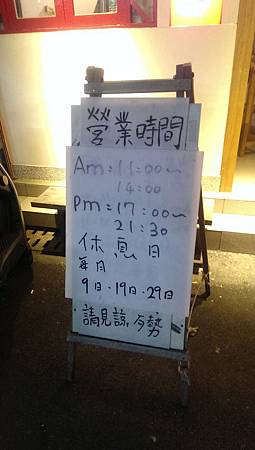 營業時間
Am:11:00~
14:00
Pm:17:00~
21:30
休息日
每月
9日.19日.29日
請見諒,歹勢